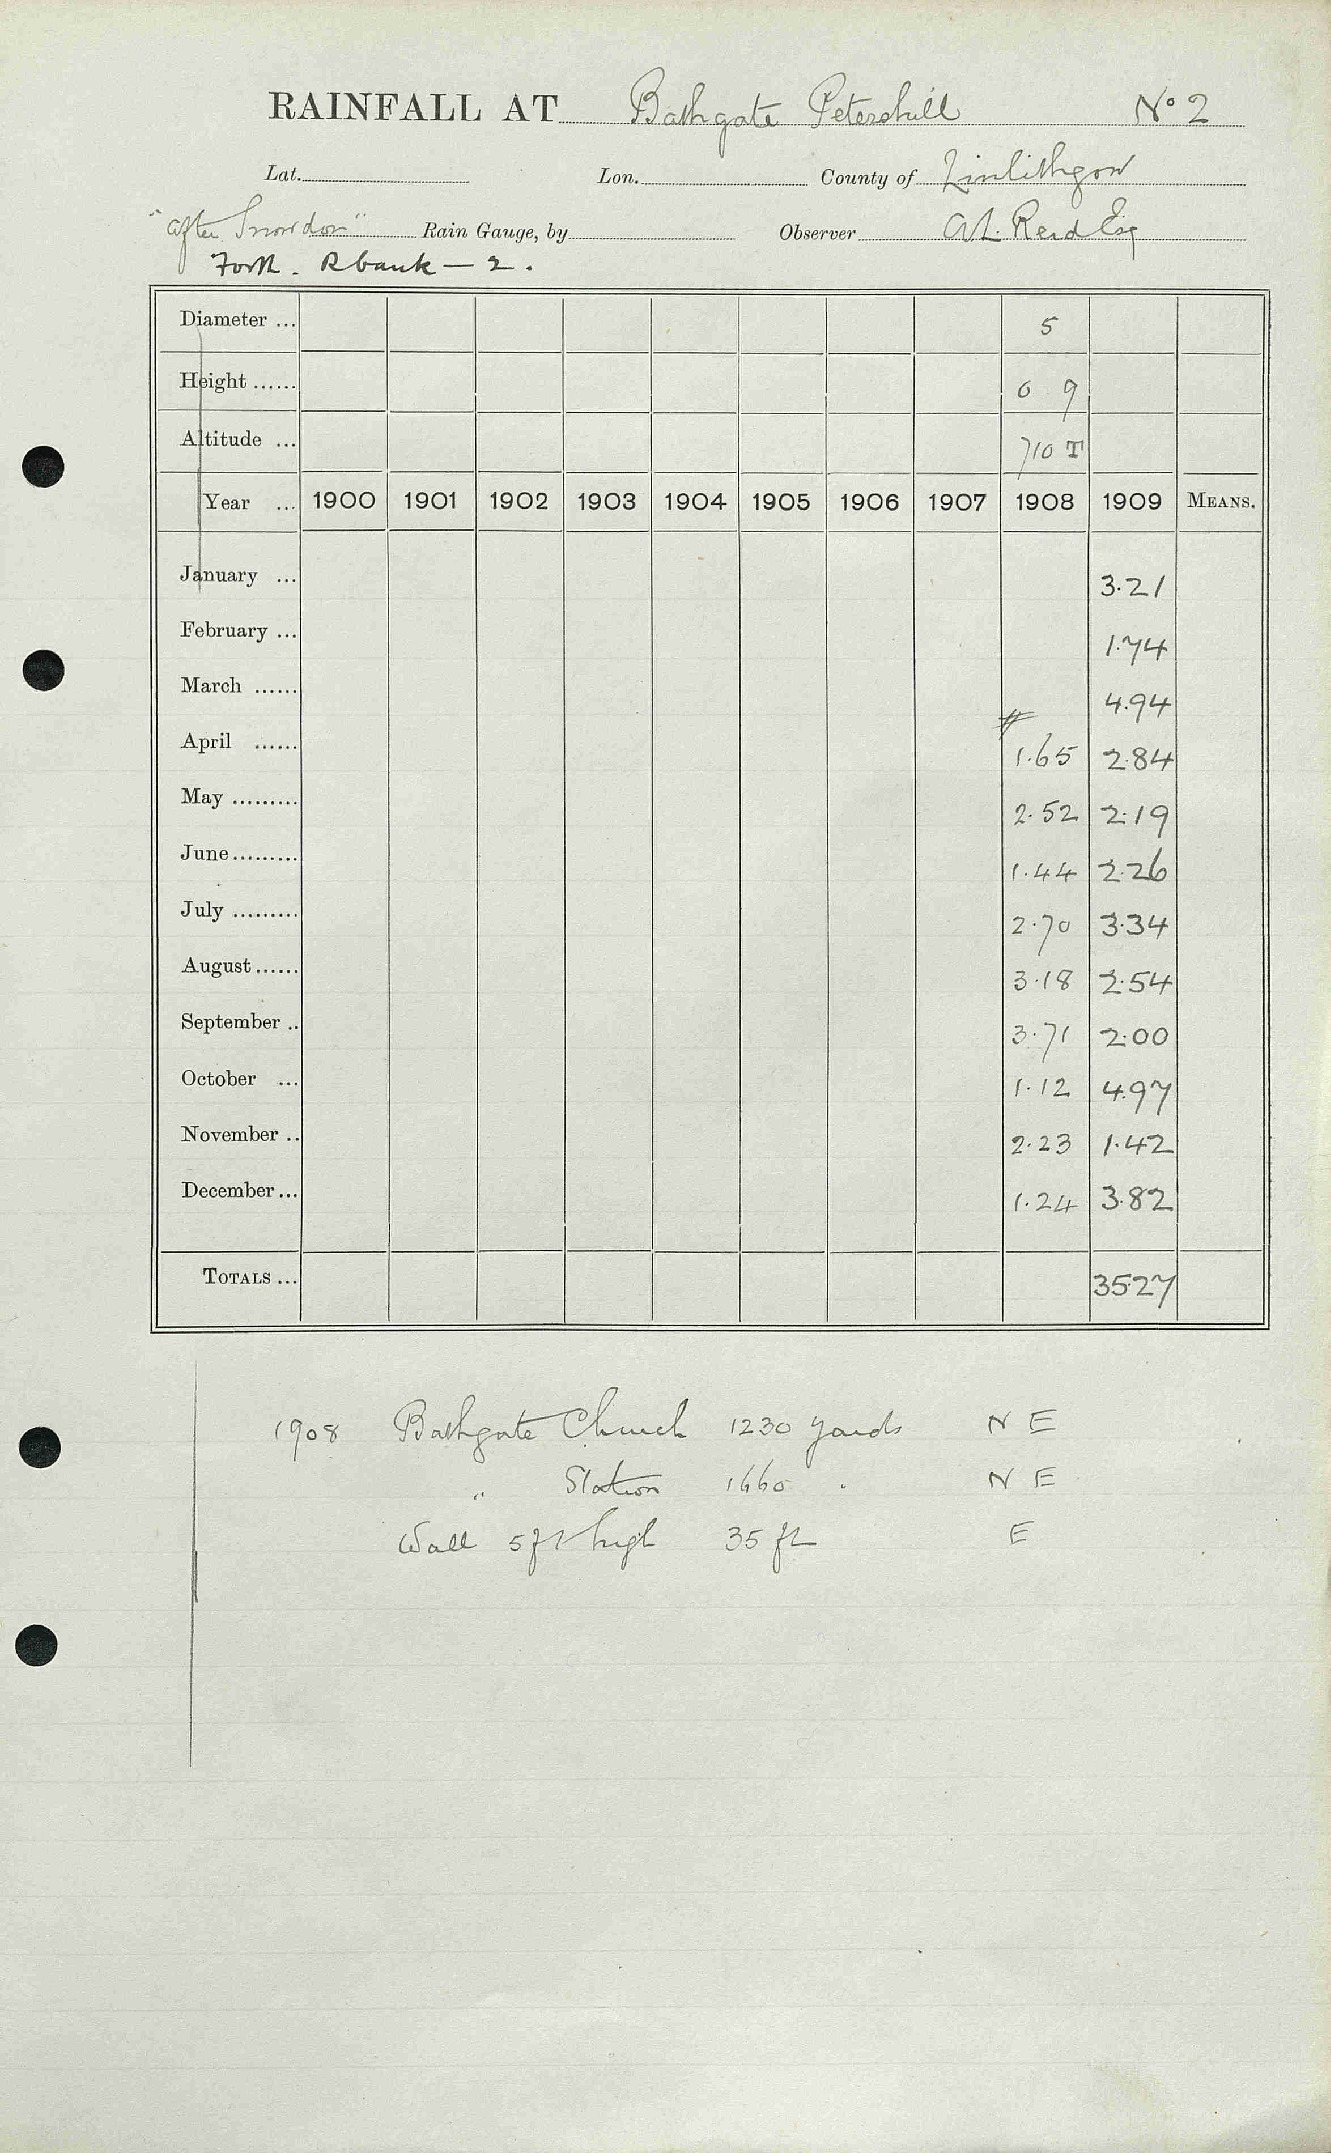 RAINFALL AT Bathgate Petershill No 2
Lat. Lon. County of Linlithgow
"after Snowdon" Rain Gauge, by Observer
Forth. R bank — 2.
Diameter ... 5
Height ...... 0 9
Altitude ... 710 T
Year ... 1900 1901 1902 1903 1904 1905 1906 1907 1908 1909 MEANS.
January ... 3.21
February ... 1.74
March ...... 4.94
April ...... 1.65 2.84
May ......... 2.52 2.19
June......... 1.44 2.26
July ......... 2.70 3.34
August...... 3.18 2.54
September .. 3.71 2.00
October ... 1.12 4.97
November .. 2.23 1.42
December... 1.24 3.82
TOTALS ... 35.27
1908 Bathgate Church 1230 yards N E
" Station 1660 . N E
Wall 5 ft high 35 ft E